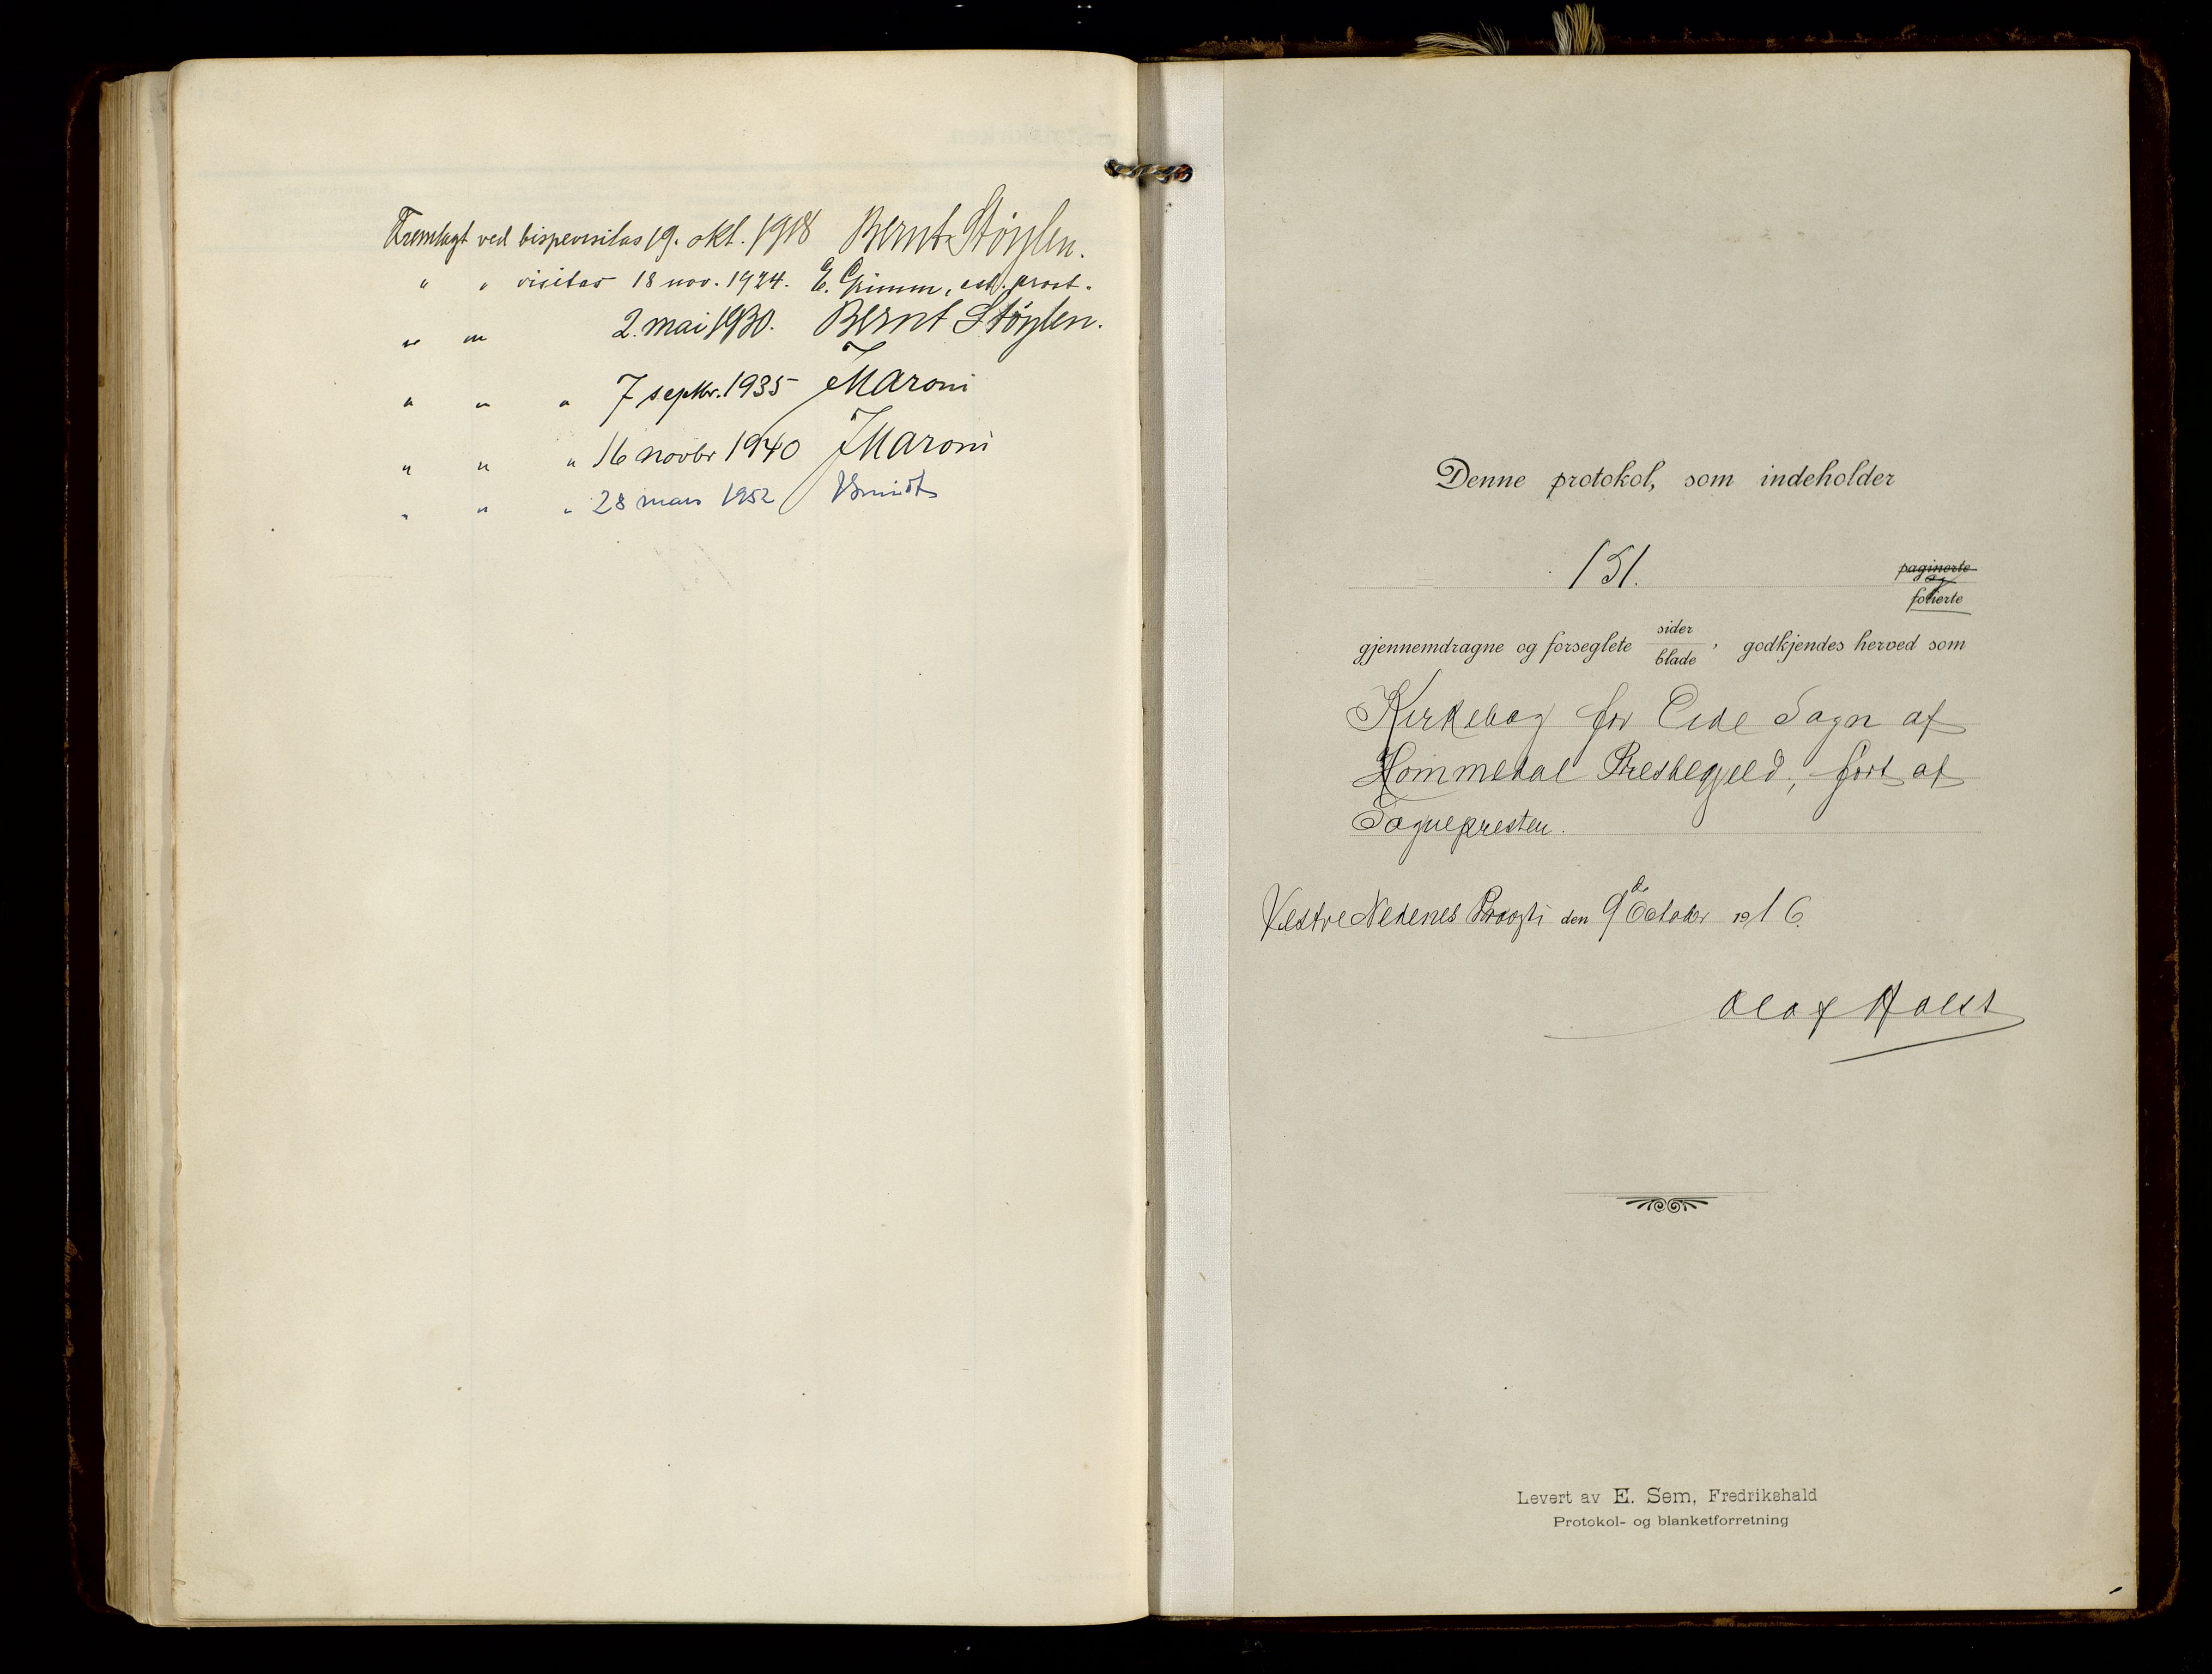 Fremlagt ved bispevisitas 19. okt. 1918 Bernt Støylen.
" " visitas 18 nov. 1924. E. Grimm, cst. prost.
" " 2. mai 1930. Bernt Støylen.
" " " 7 septbr. 1935 JMaroni
" " " 16 novbr 1940 JMaroni
" " " 28 mars 1952
Denne protokol, som indeholder
151.
paginerte
og
folierte
gjennemdragne og forseglete sider
blade, godkjendes herved som
Kirkebog for Eide Sogn af
Hommedal Prestegjeld, ført af
Sognepresten.
Vestre Nedenes Provsti den 9de October 1916.
Olaf Holst
Levert av E. Sem, Fredrikshald
Protokol- og blanketforretning